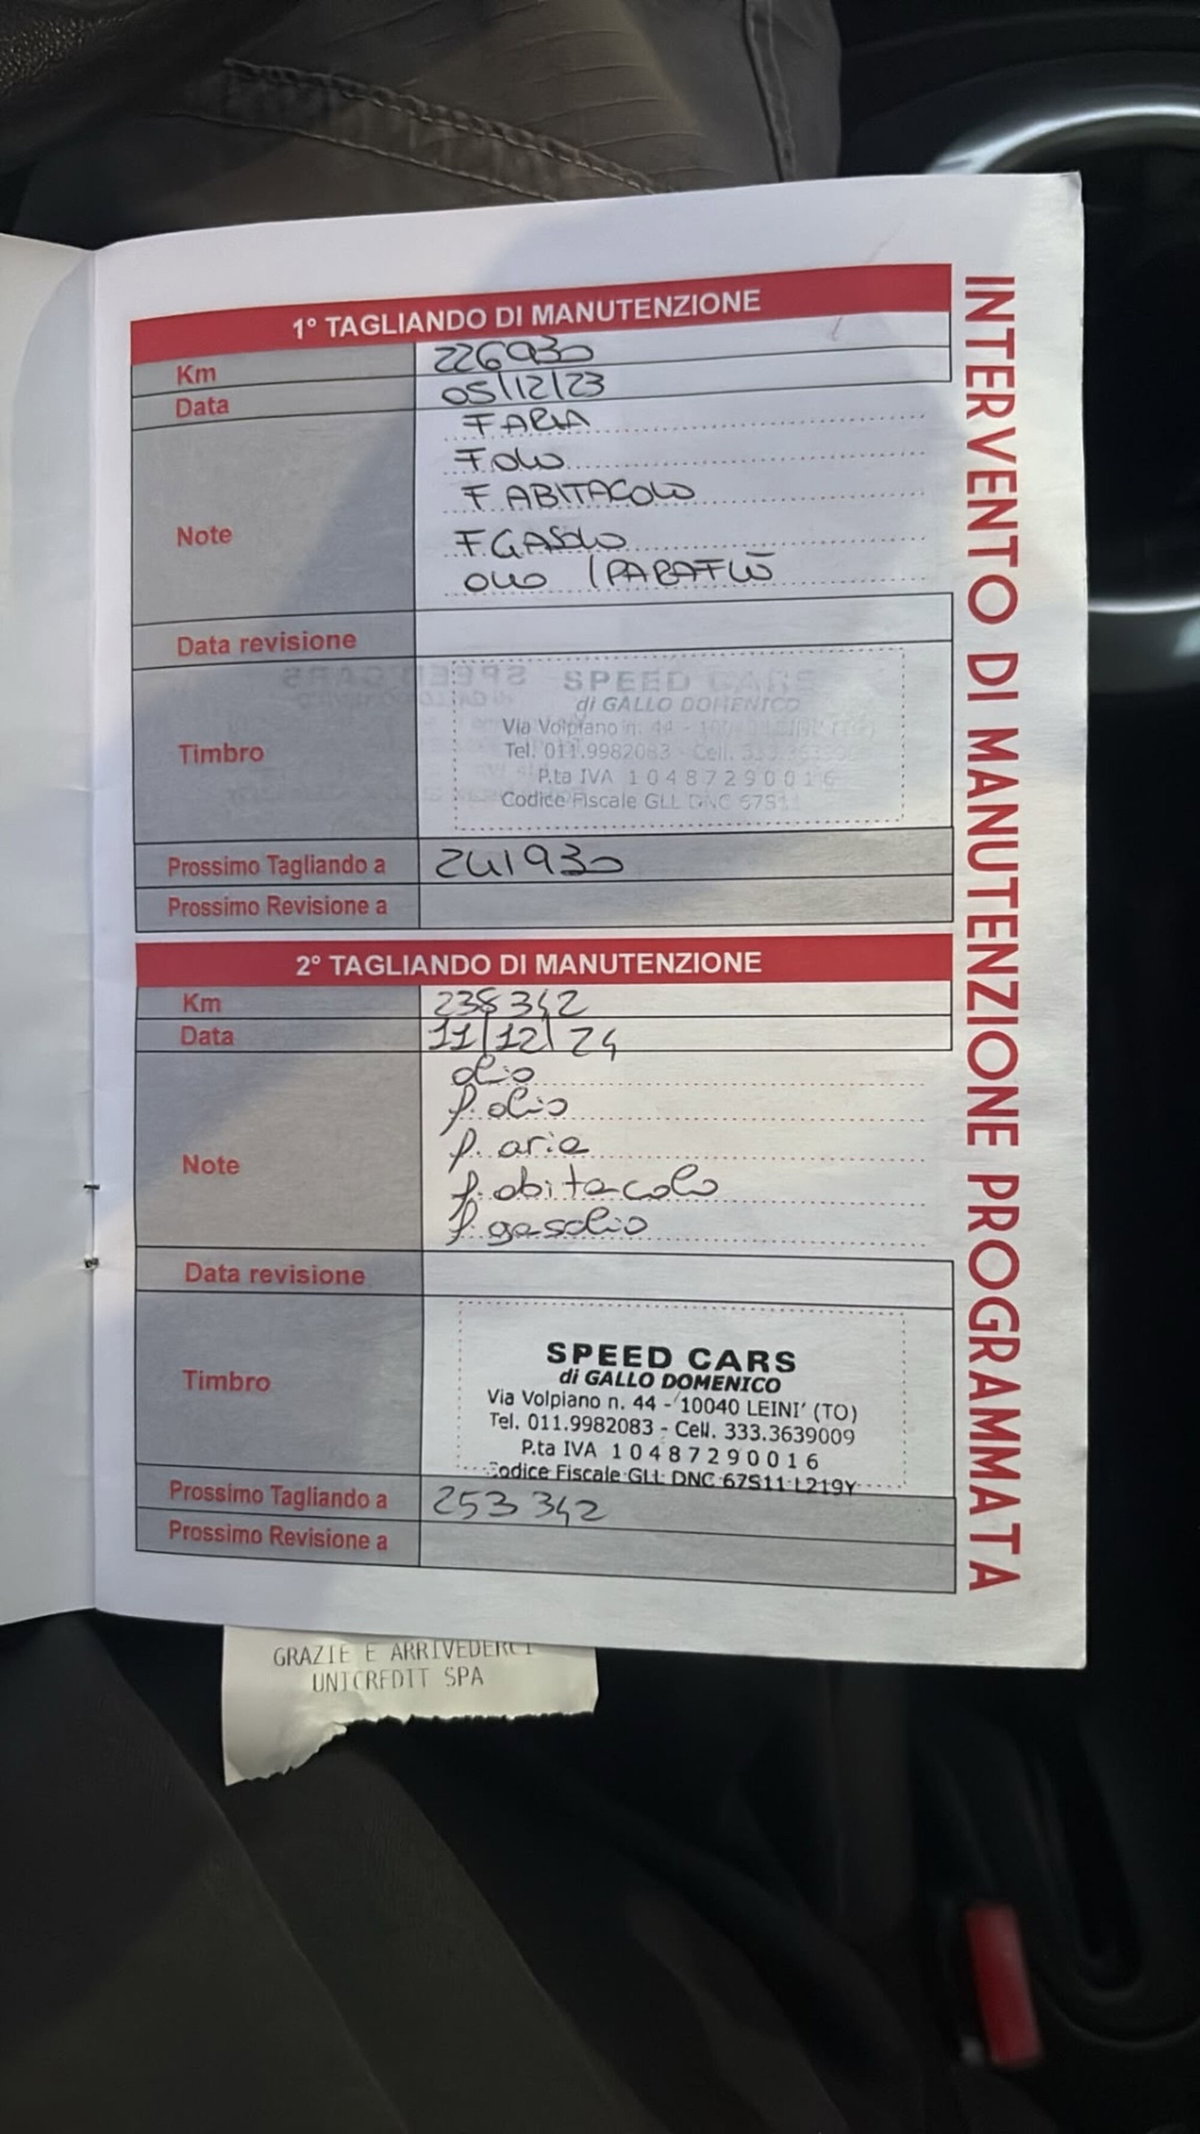 INTERVENTO DI MANUTENZIONE PROGRAMMATA
1° TAGLIANDO DI MANUTENZIONE
Km 226930
Data 05/12/23
Note
F ARIA
F. OLIO
F. ABITACOLO
F. GASOLIO
OLIO
Data revisione
Timbro
SPEED CARS
di GALLO DOMENICO
Via Volpiano n. 44 - 10040 LEINI' (TO)
Tel. 011.9982083 - Cell. 333.3639009
P.ta IVA 10487290016
Codice Fiscale GLL DNC 67S11
Prossimo Tagliando a 241930
Prossimo Revisione a
2° TAGLIANDO DI MANUTENZIONE
Km 238342
Data 11/12/24
Note
olio
f. olio
f. aria
f. abitacolo
f. gasolio
Data revisione
Timbro
SPEED CARS
di GALLO DOMENICO
Via Volpiano n. 44 - 10040 LEINI' (TO)
Tel. 011.9982083 - Cell. 333.3639009
P.ta IVA 10487290016
Codice Fiscale GLL DNC 67S11 L219Y
Prossimo Tagliando a 253342
Prossimo Revisione a
GRAZIE E ARRIVEDERCI
UNICREDIT SPA